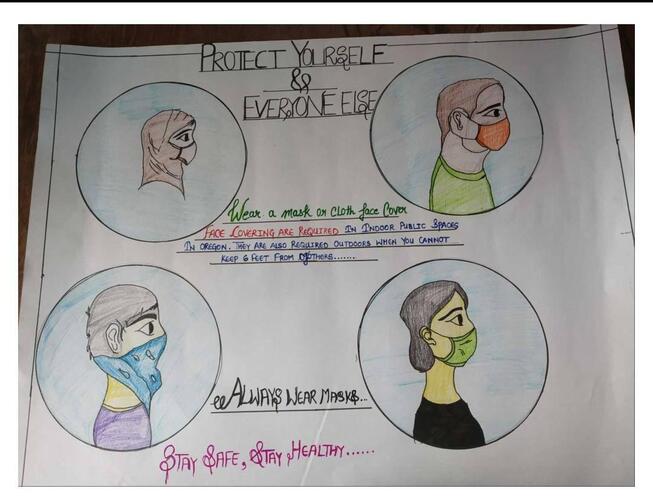 PROTECT YOURSELF
&
EVERYONE ELSE
Wear a mask or cloth face cover
FACE COVERING ARE REQUIRED IN INDOOR PUBLIC SPACES
IN OREGON. THEY ARE ALSO REQUIRED OUTDOORS WHEN YOU CANNOT
KEEP 6 FEET FROM OTHERS.......
ALWAYS WEAR MASKS...
STAY SAFE, STAY HEALTHY......